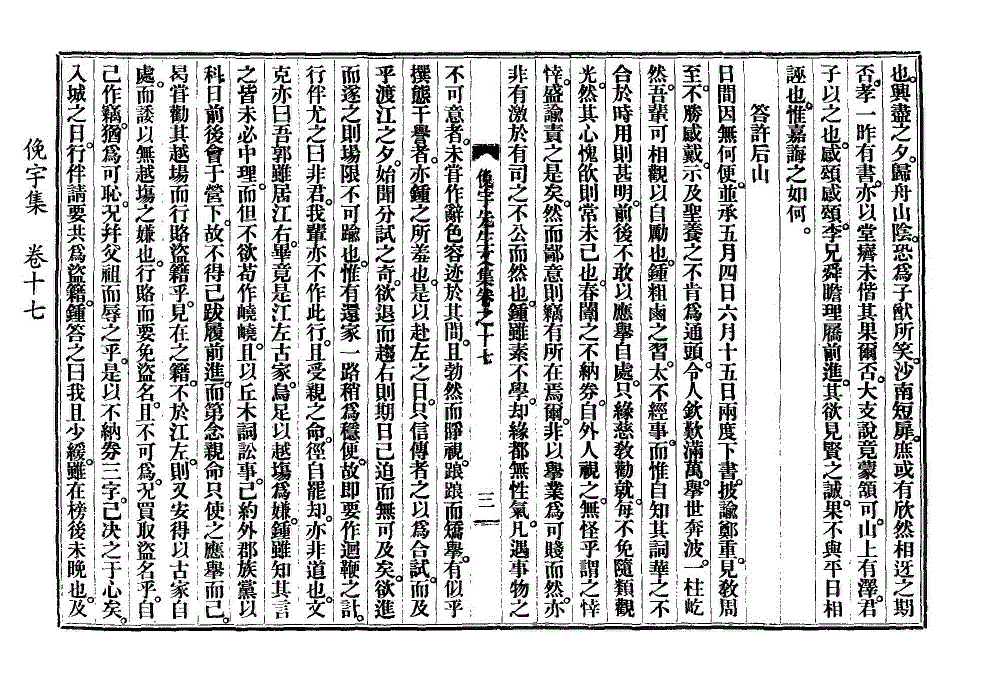 也。興盡之夕。歸舟山陰。恐爲子猷所笑。沙南短扉。庶或有欣然相迓之期
否。孝一昨有書。亦以堂癠未偕。其果爾否。大支說竟蒙頷可。山上有澤。君
子以之也。感頌感頌。李兄舜瞻理屩前進。其欲見賢之誠。果不與平日相
誣也。惟嘉誨之如何。
答許后山
日間因無何便。並承五月四日六月十五日兩度下書。披諭鄭重。見敎周
至。不勝感戴。示及聖養之不肯爲通頭。令人欽歎滿萬。擧世奔波。一柱屹
然。吾輩可相觀以自勵也。鍾粗鹵之習。太不經事。而惟自知其詞華之不
合於時用則甚明。前後不敢以應擧自處。只緣慈敎勸就。每不免隨類觀
光。然其心愧欲則常未已也。春闈之不納券。自外人視之。無怪乎謂之悻
悻。盛諭責之是矣。然而鄙意則竊有所在焉爾。非以擧業爲可賤而然。亦
非有激於有司之不公而然也。鍾雖素不學。却緣都無性氣。凡遇事物之
俛宇先生文集卷之十七
三
不可意者。未甞作辭色容迹於其間。且勃然而睜視。踉踉而矯擧。有似乎
撰態干譽者。亦鍾之所羞也。是以赴左之日。只信傳者之以爲合試。而及
乎渡江之夕。始聞分試之奇。欲退而趨右則期日已迫而無可及矣。欲進
而逐之則場限不可踰也。惟有還家一路稍爲穩便。故即要作迴鞭之計。
行伴尤之曰非君。我輩亦不作此行。且受親之命。徑自罷却。亦非道也。文
克亦曰吾郭雖居江右。畢竟是江左古家。烏足以越塲爲嫌。鍾雖知其言
之皆未必中理。而但不欲苟作嶢嶢。且以丘木詞訟事。已約外郡族黨以
科日前後會于營下。故不得已跋履前進。而第念親命只使之應擧而已。
曷甞勸其越場而行賂盜籍乎。見在之籍。不於江左。則又安得以古家自
處。而諉以無越塲之嫌也。行賂而要免盜名。且不可爲。况買取盜名乎。自
己作竊。猶爲可恥。况幷父祖而辱之乎。是以不納券三字。已决之于心矣。
入城之日。行伴請要共爲盜籍。鍾答之曰我且少緩。雖在榜後未晩也。及
俛宇集 卷十七